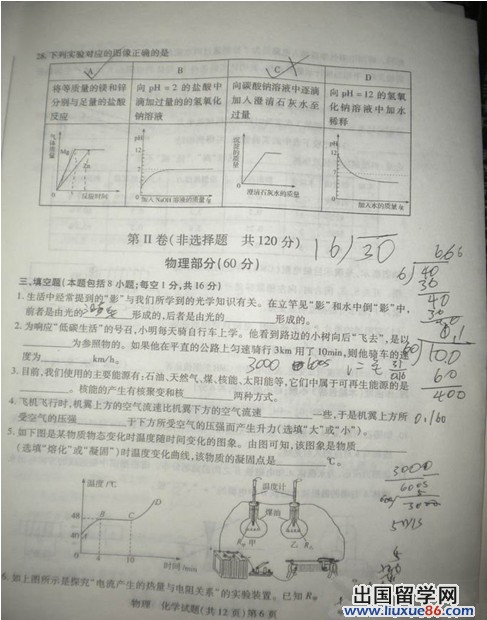 28. 下列实验对应的图像正确的是
A
B
C
D
将等质量的镁和锌
分别与足量的盐酸
反应
向 pH = 2 的盐酸中
滴加过量的的氢氧化
钠溶液
向碳酸钠溶液中逐滴
加入澄清石灰水至
过量
向 pH = 12 的氢氧
化钠溶液中加水
稀释
气体质量
Mg
Zn
0
反应时间
pH
12
7
2
0
加入 NaOH 溶液的质量/g
沉淀的质量
0
澄清石灰水的质量
pH
12
7
0
加入水的质量/g
第 II 卷(非选择题 共 120 分)
16 30
物理部分(60 分)
三、填空题(本题包括 8 小题;每空 1 分,共 16 分)
1. 生活中经常提到的“影”与我们所学到的光学知识有关。在立竿见“影”和水中倒“影”中,
前者是由光的形成的,后者是由光的形成的。
2. 为响应“低碳生活”的号召,小明每天骑自行车上学。他看到路边的小树向后“飞去”,是以
为参照物的。如果他在平直的公路上匀速骑行 3km 用了 10min,则他骑车的速
度为 km/h。
3000
600s
3. 目前,我们使用的主要能源有:石油、天然气、煤、核能、太阳能等,它们中属于可再生能源的是
。核能的产生有核聚变和核 两种方式。
4. 飞机飞行时,机翼上方的空气流速比机翼下方的空气流速 一些,于是机翼上方所
受空气的压强 于下方所受空气的压强而产生升力(选填“大”或“小”)。
5. 如下图是某物质物态变化时温度随时间变化的图象。由图可知,该图象是物质
(选填“熔化”或“凝固”)时温度变化曲线,该物质的凝固点是 ℃。
温度/℃
48
B
C
D
A
0
4
10
时间/min
温度计
煤油
甲
乙
6. 如上图所示是探究“电流产生的热量与电阻关系”的实验装置。已知 R甲
物理 化学试题(共 12 页)第 6 页
出国留学网
www.liuxue86.com